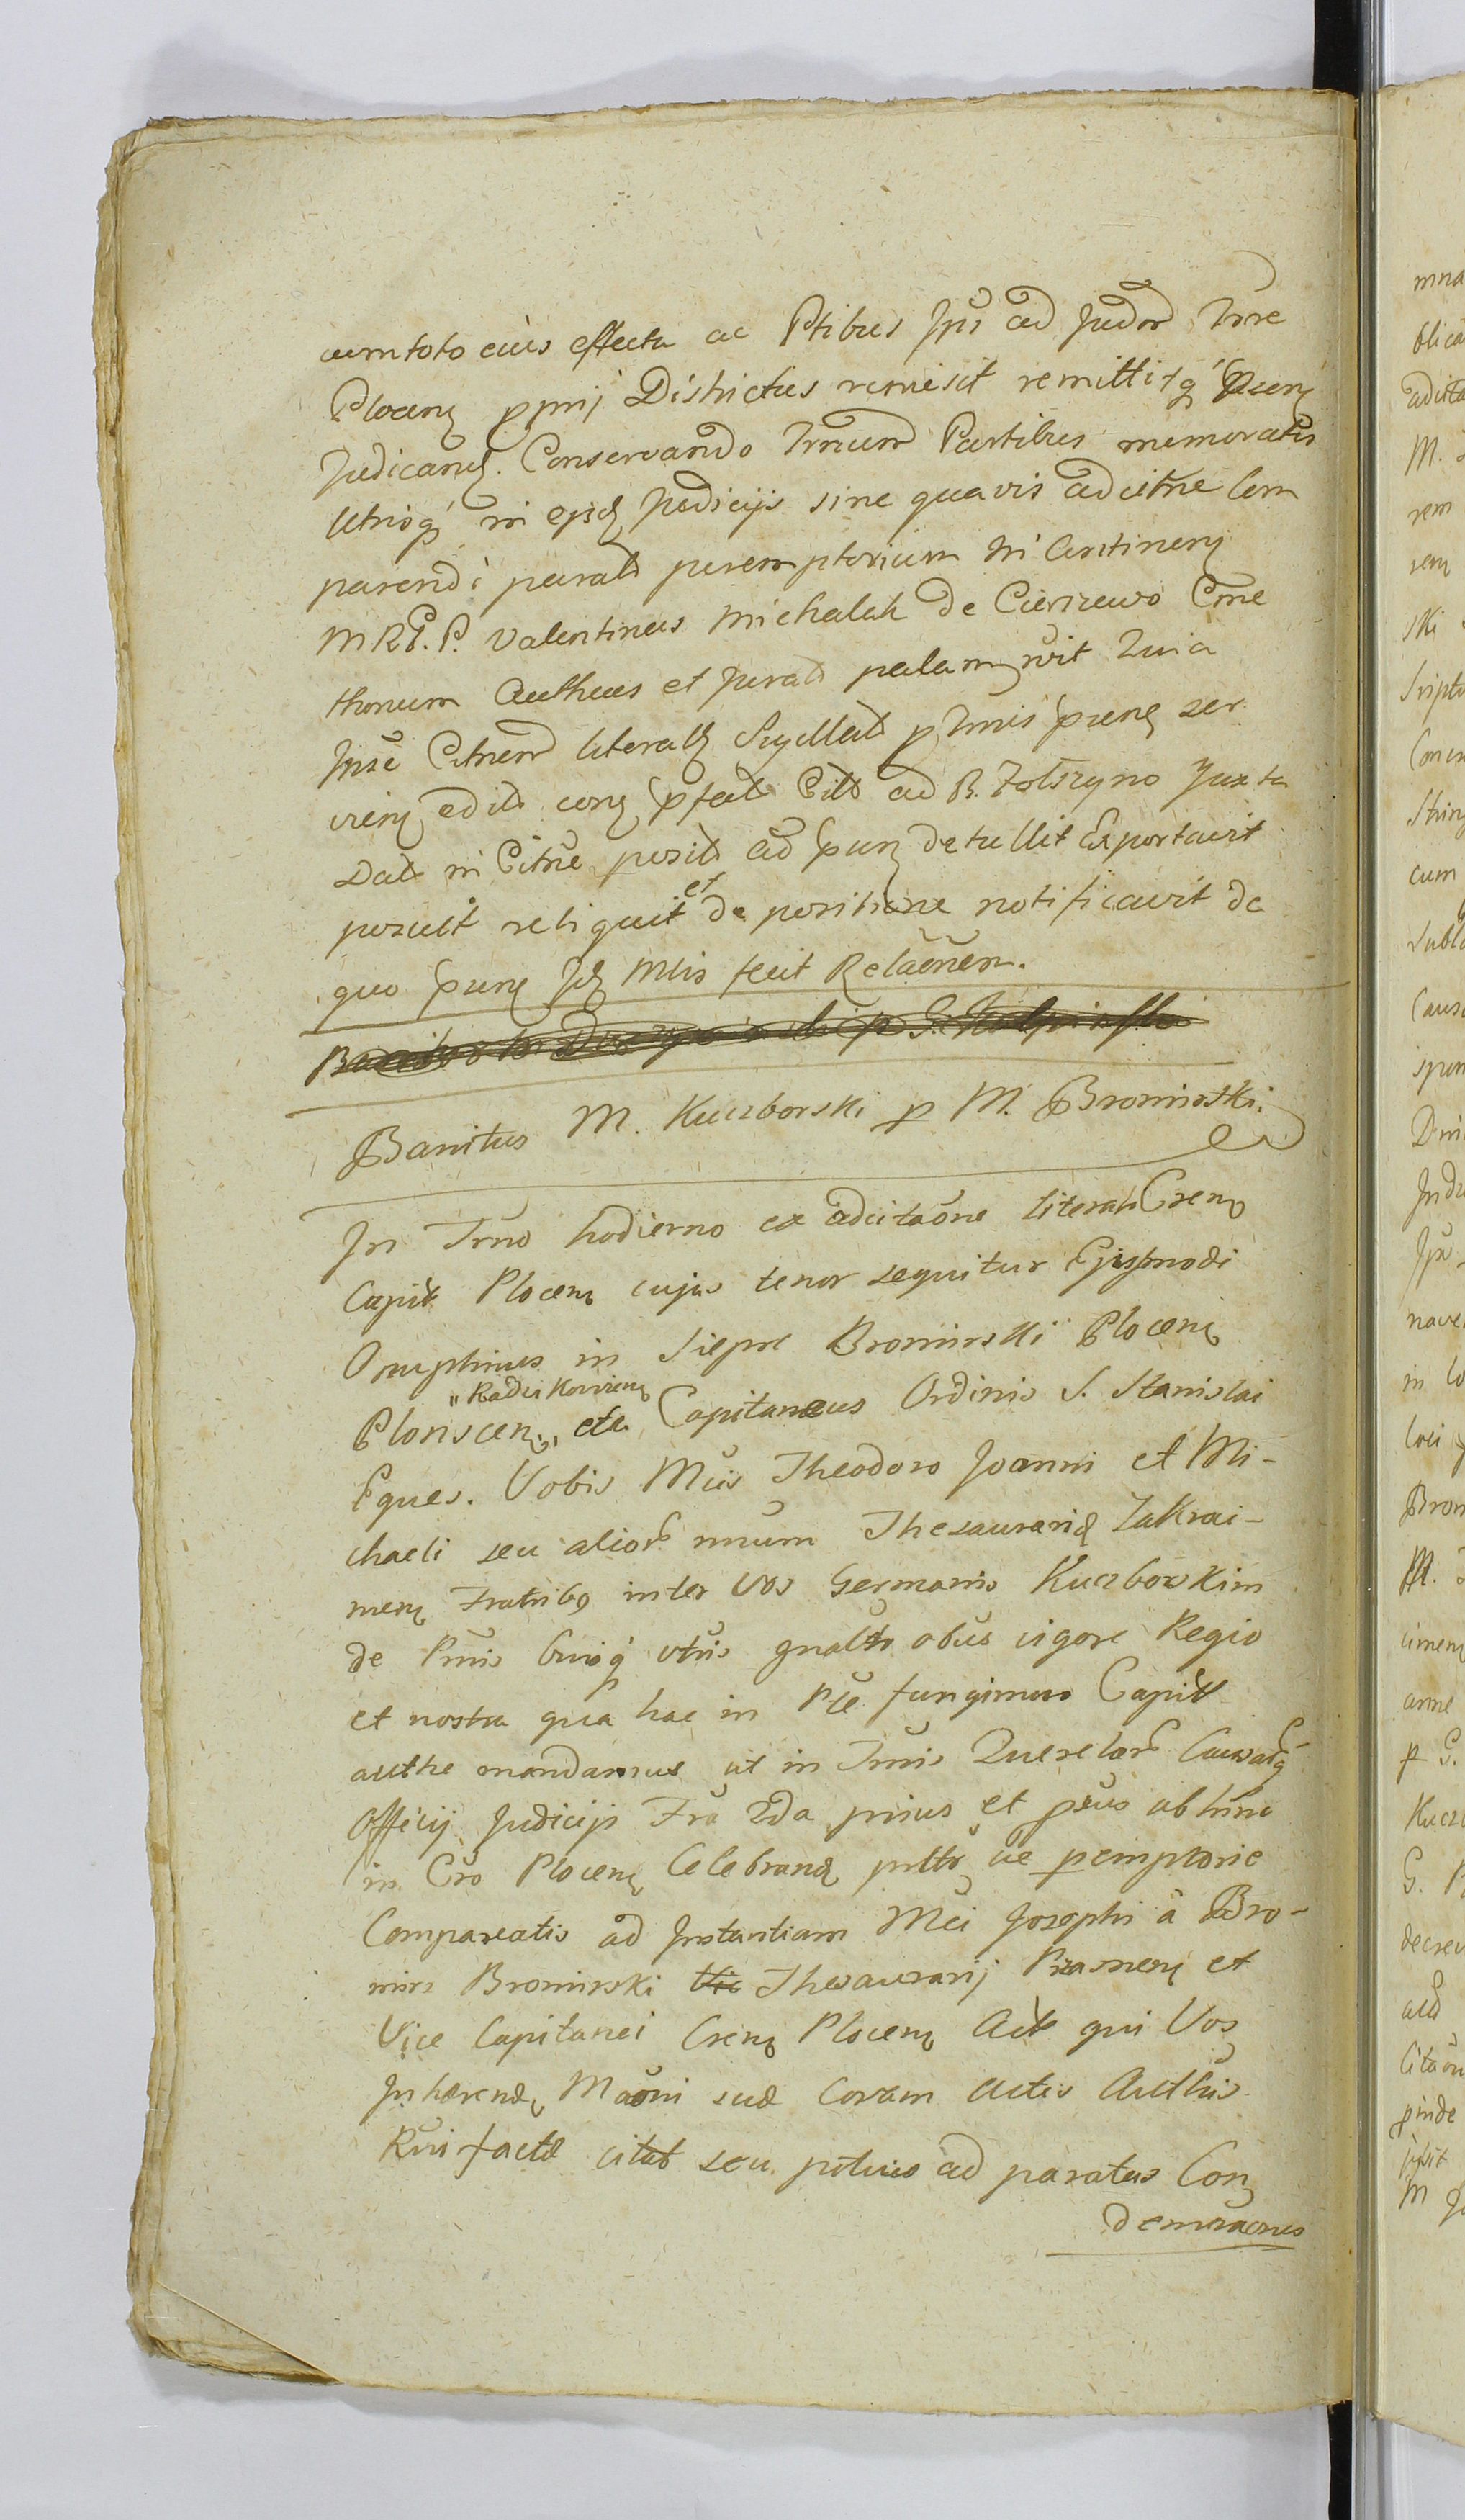 cum toto eius effectu ac Ptibus Ipis ad Judia Trre
Plocen ppnij Districtus remisit remittitq
Judicand. Conservando Trnum Partibus memoratis
utrisq in ejsd Judicijs sine quavis adcitne com
parendi parald peremptorium In Continen
MRT.P. Valentinus Michalak de Cierszewo Cme
thonum Authus et Jurald palam rvit Quia
Inse Citnem literalb Sigillald p Tmis pune ser
vien edild pfald Cild ad B. Zolszyno Juxta
Dald in Citne posild ad pun detullit Exportavit
posuit reliquit et de positione notificavit de
quo pune Id Mlis fecit Relaonem.
Banitus M. Kuczborski p M. Bromirski.
In Trno hodierno ex adcitaone literali Cren
Capit Plocen cujus tenor sequitur Ejusmodi
Onuphrius in Siepre Bromirski Plocen
"Radzikovien
Plonscen," etc. Capitaneus Ordinis S. Stanislai
Eques. Vobis Mcis Theodoro Joanni et Mi-
chaeli seu alior nnum Thesaurarid Zakroci-
men Fratribq inter Vos Germanis Kuczborskim
de Pnnis Cnisq vtris gnalbr obus vigore Regio
et nostra qua hac in Pte fungimur Capitl
authe mandamus ut in Trnis Querelar Causarq
Officij Judicijs Fra 2da prius et prius ab hinc
in Cro Plocen Celebrand pnttr ac pemptorie
Compareatis ad Instantiam Mci Josephi a Bro-
mirz Bromirski Vic Thesaurarij Prasnen et
Vice Capitanei Cren Plocen Act qui Vos
Inhærend Maoni suæ Coram Actis Authis
Rvni factæ citat seu potius ad paratas Con
demnaonis